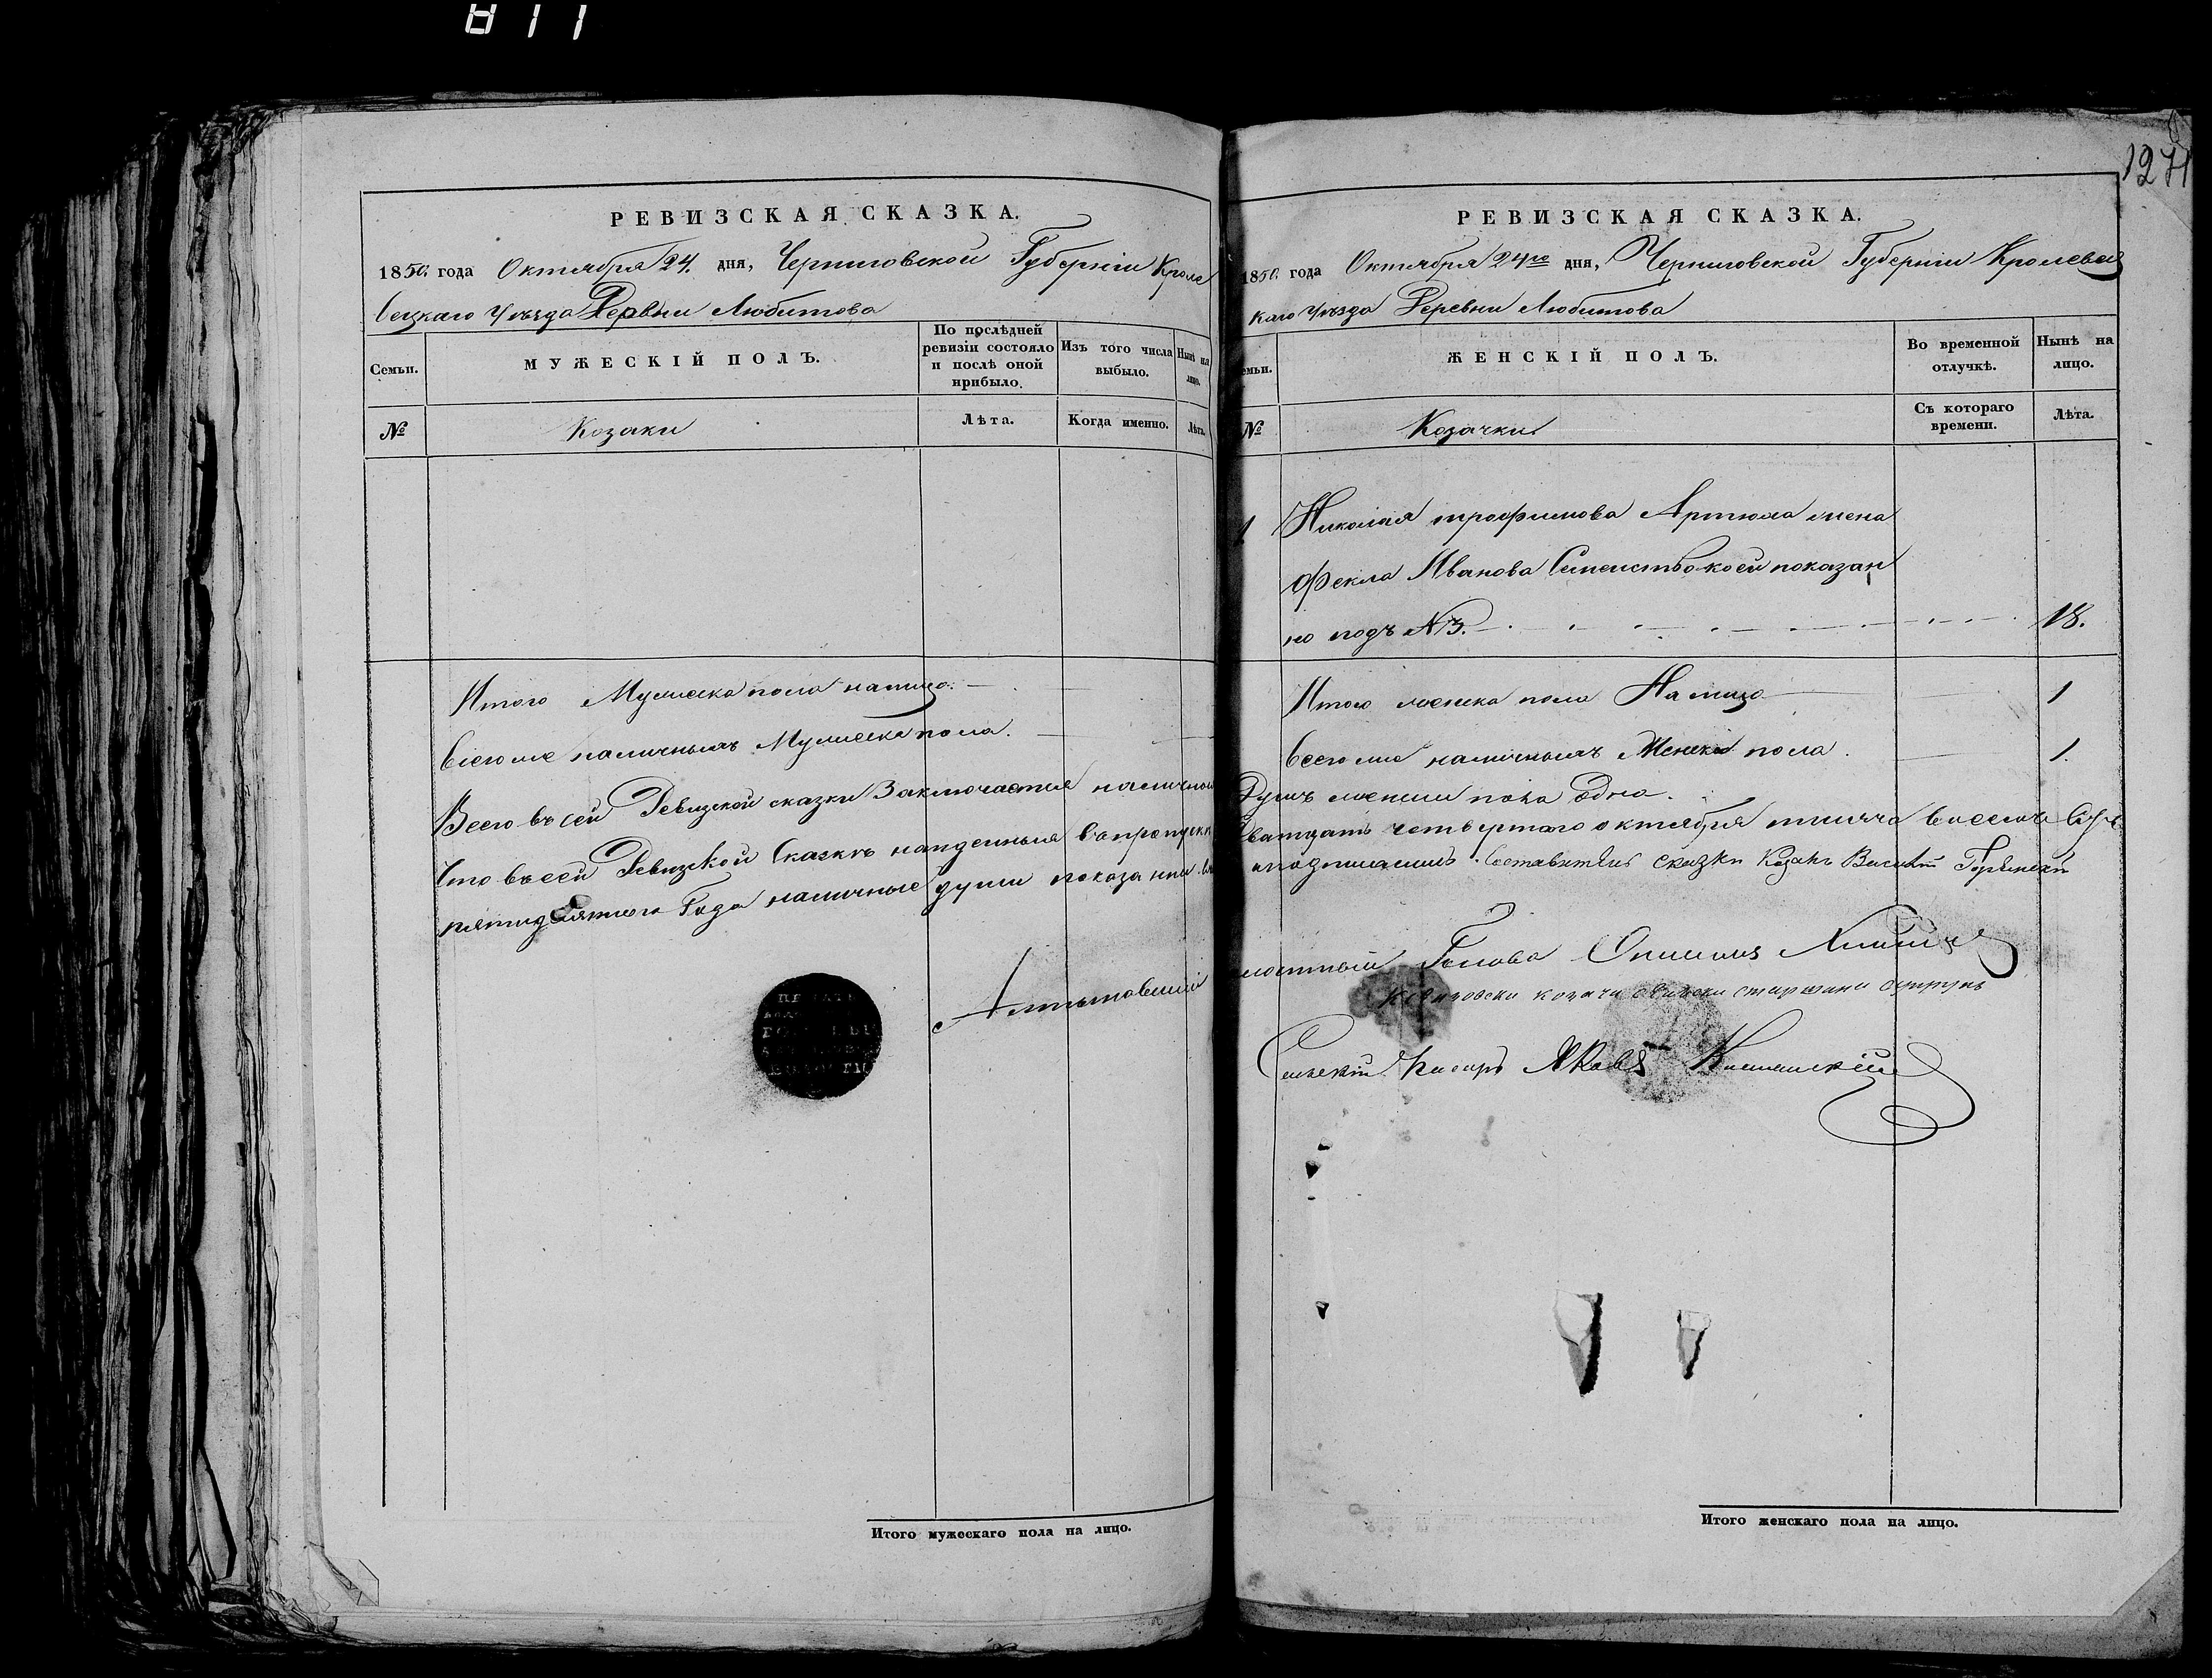 811
РЕВИЗСКАЯ СКАЗКА.
1850. года Октября 24. дня, Черниговской Губерніи Кроле
вецкаго Уѣзда Деревни Любитова
Семьи.
МУЖЕСКІЙ ПОЛЪ.
По послѣдней ревизіи состояло и послѣ оной прибыло.
Изъ того числа выбыло.
Нынѣ на лицо.
№
Козаки
Лѣта.
Когда именно.
Лѣта.
Итого Мужеска пола налицо.
Всего же наличныхъ Мужеска пола.
Всего въ сей Ревизской сказки Заключается наличной
Что въ сей Ревизской Сказкѣ найденныя
пятидесятого Года наличные души показаны
РЕВИЗСКАЯ СКАЗКА.
1850. года Октября 24го дня, Черниговской Губерніи Кролевец
каго Уѣзда Деревни Любитова
Семьи.
ЖЕНСКІЙ ПОЛЪ.
Во временной отлучкѣ.
Нынѣ на лицо.
№
Козачки
Съ котораго времени.
Лѣта.
1 Николая трофимова Артюха жена
Фекла Иванова Семейство коей показан
но подъ №3. 18.
Итого женска пола На лицо 1
всего же наличныхъ Женска пола. 1.
Душъ женска пола Одна.
Дватцать четвертого октября тисяча восемъ
Составитель сказки Козакъ Василій
Голова
старшини
Сельскій Писарь Яковъ
Итого мужескаго пола на лицо.
Итого женскаго пола на лицо.